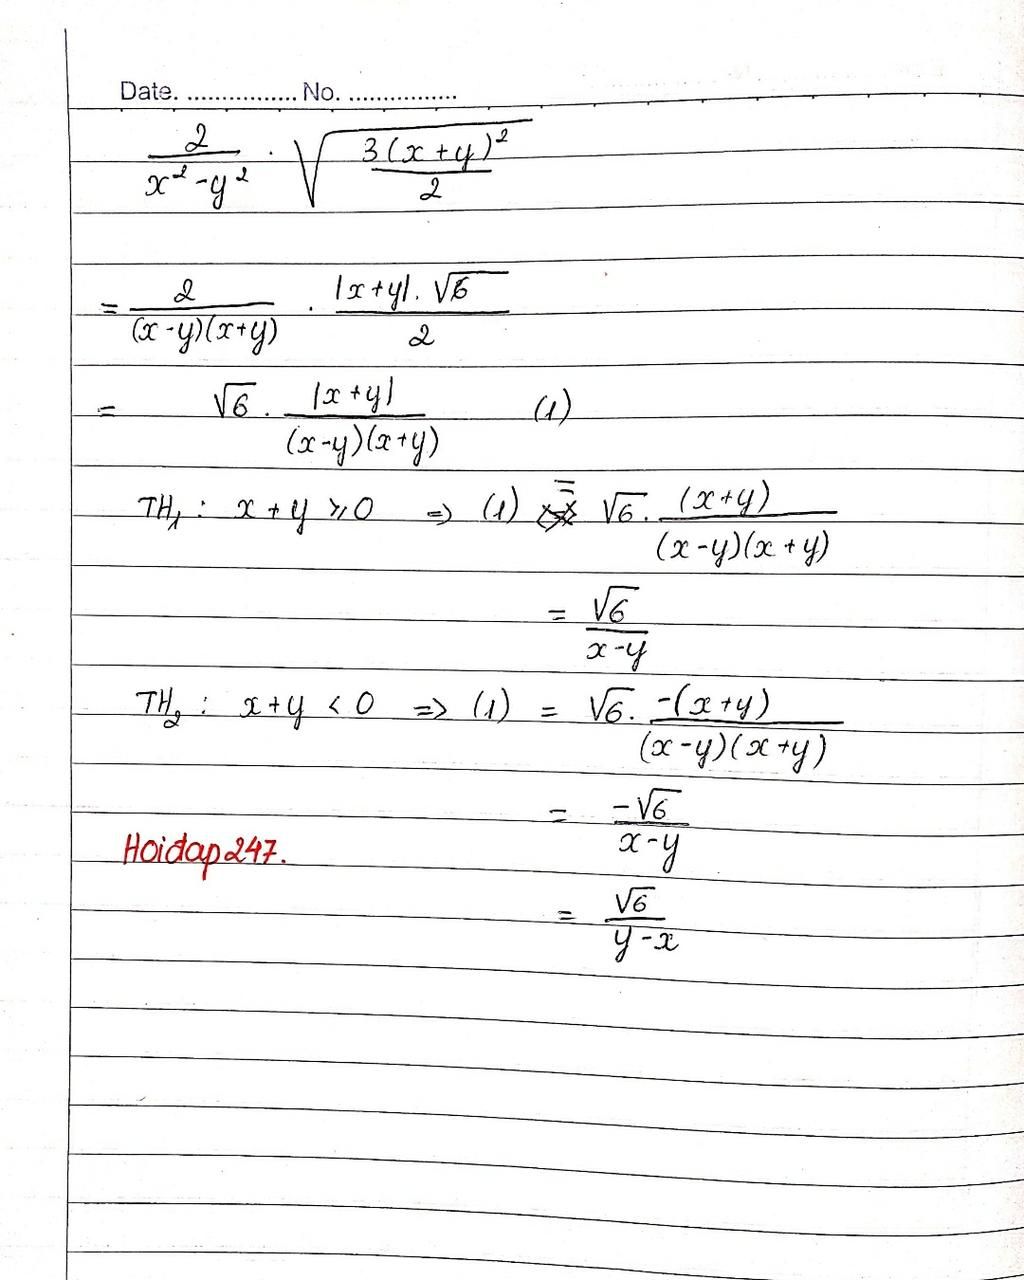 Date. ................ No. ................
2/(x² - y²) · √(3(x+y)²/2)
= 2/((x-y)(x+y)) · |x+y|·√6/2
= √6 · |x+y|/((x-y)(x+y)) (1)
TH₁ : x + y ≥ 0 => (1) = √6 · (x+y)/((x-y)(x+y))
= √6/(x-y)
TH₂ : x+y < 0 => (1) = √6 · -(x+y)/((x-y)(x+y))
= -√6/(x-y)
Hoidap247.
= √6/(y-x)